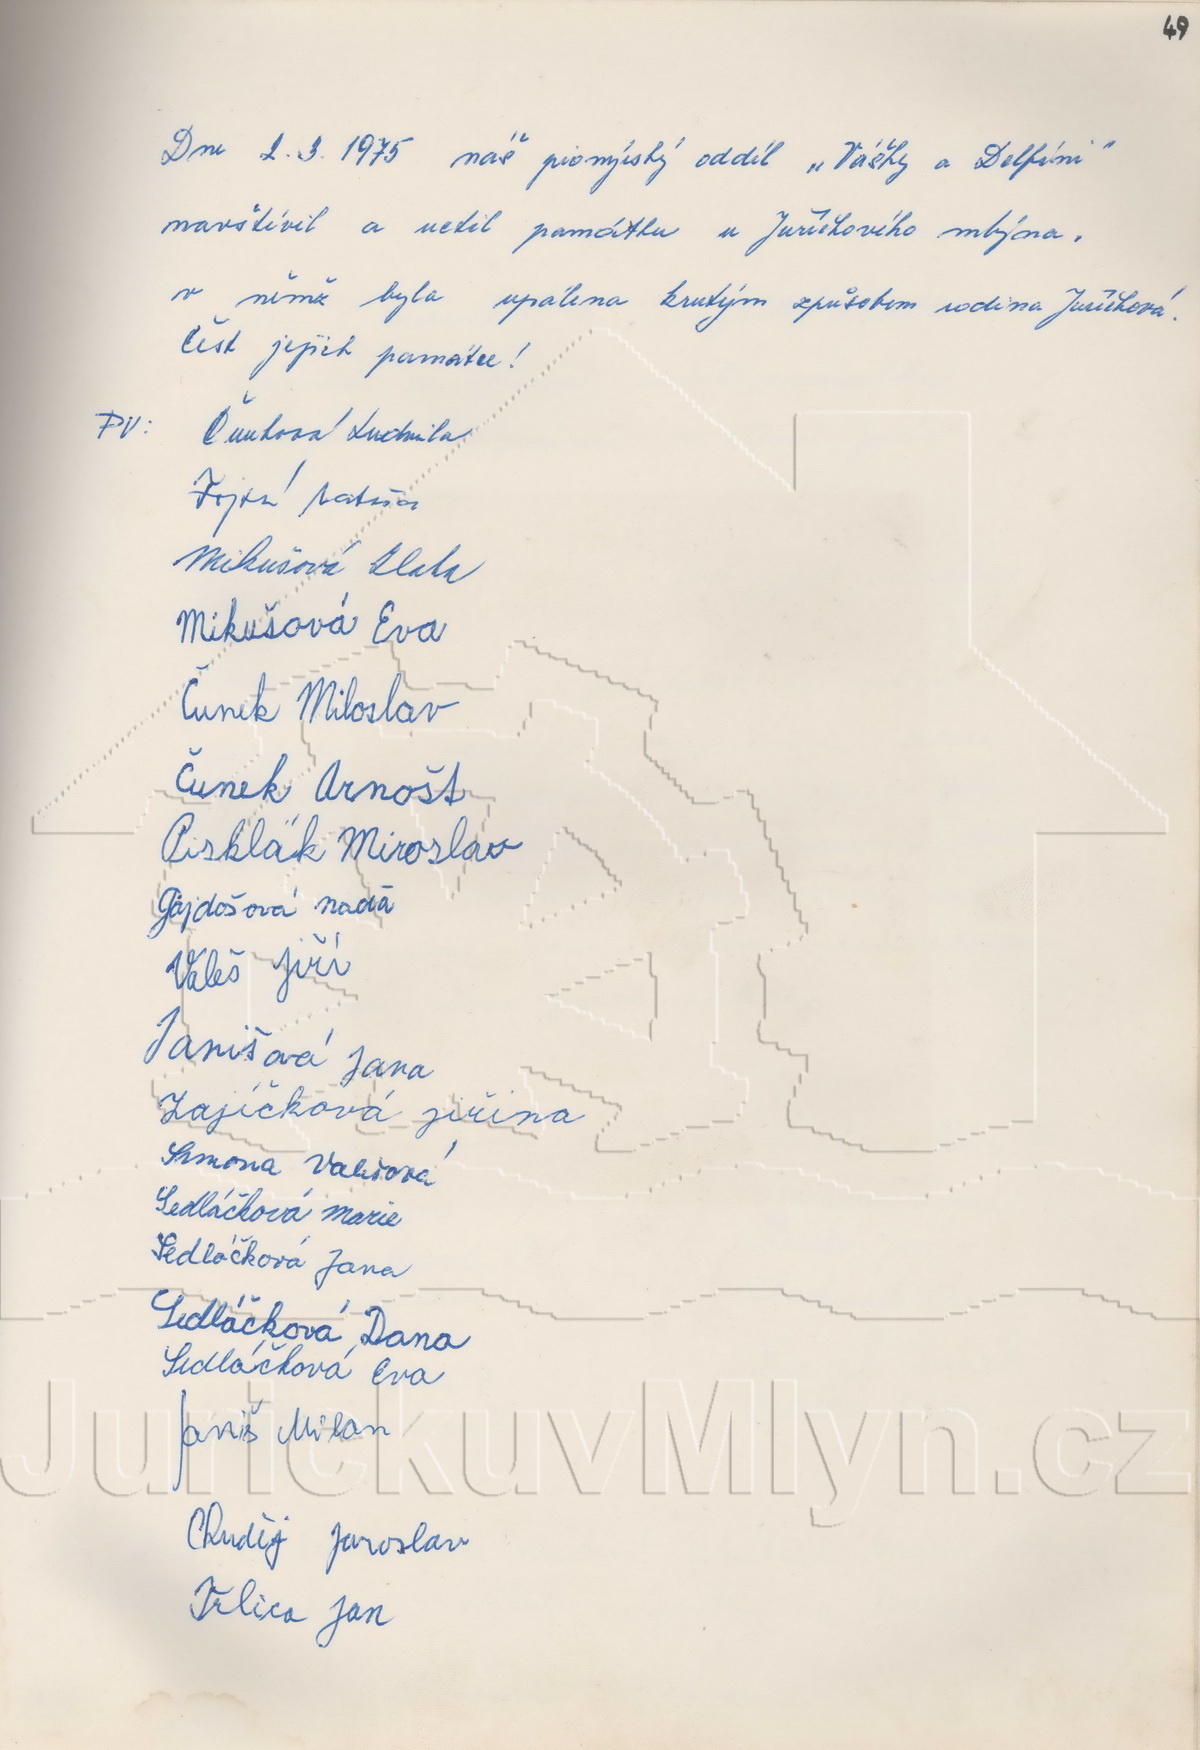 49
Dne 2.3.1975 náš pionýrský oddíl „Vážky a Delfíni"
navštívil a uctil památku u Juříčkového mlýna,
v němž byla upálena krutým způsobem rodina Juříčková.
Čest jejich památce!
PV: Čunková Ludmila
Mikušová Zlata
Mikušová Eva
Čunek Miloslav
Čunek Arnošt
Pisklák Miroslav
Gajdošová naďa
Valeš Jiří
Janišová Jana
Zajíčková jiřina
Simona Valešová
Sedláčková marie
Sedláčková Jana
Sedláčková Dana
Sedláčková Eva
Janiš Milan
JurickuvMlyn.cz
Chuděj Jaroslav
Trlica Jan